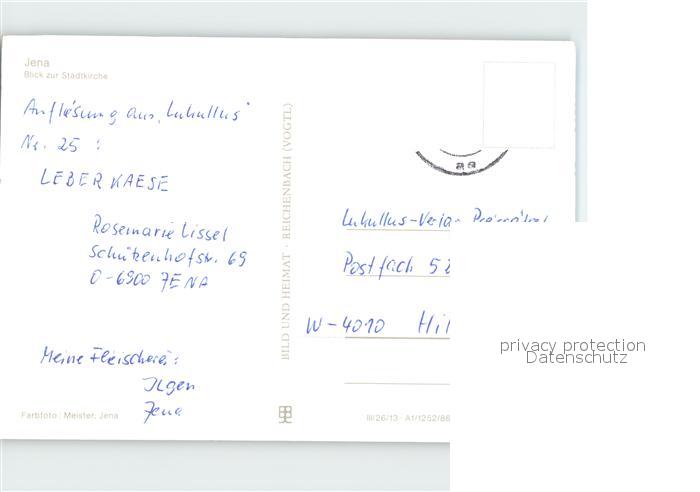 Jena
Blick zur Stadtkirche
Auflösung aus „Lukullus"
Nr. 25 :
LEBERKAESE
Rosemarie Lissel
Schützenhofstr. 69
O-6900 JENA
Meine Fleischerei:
Ilgen
Jena
Farbfoto: Meister, Jena
BILD UND HEIMAT · REICHENBACH (VOGTL)
Lukullus-Verlag Preisrätsel
Postfach 52
W-4010 Hil
III/26/13 · A1/1252/86
privacy protection
Datenschutz